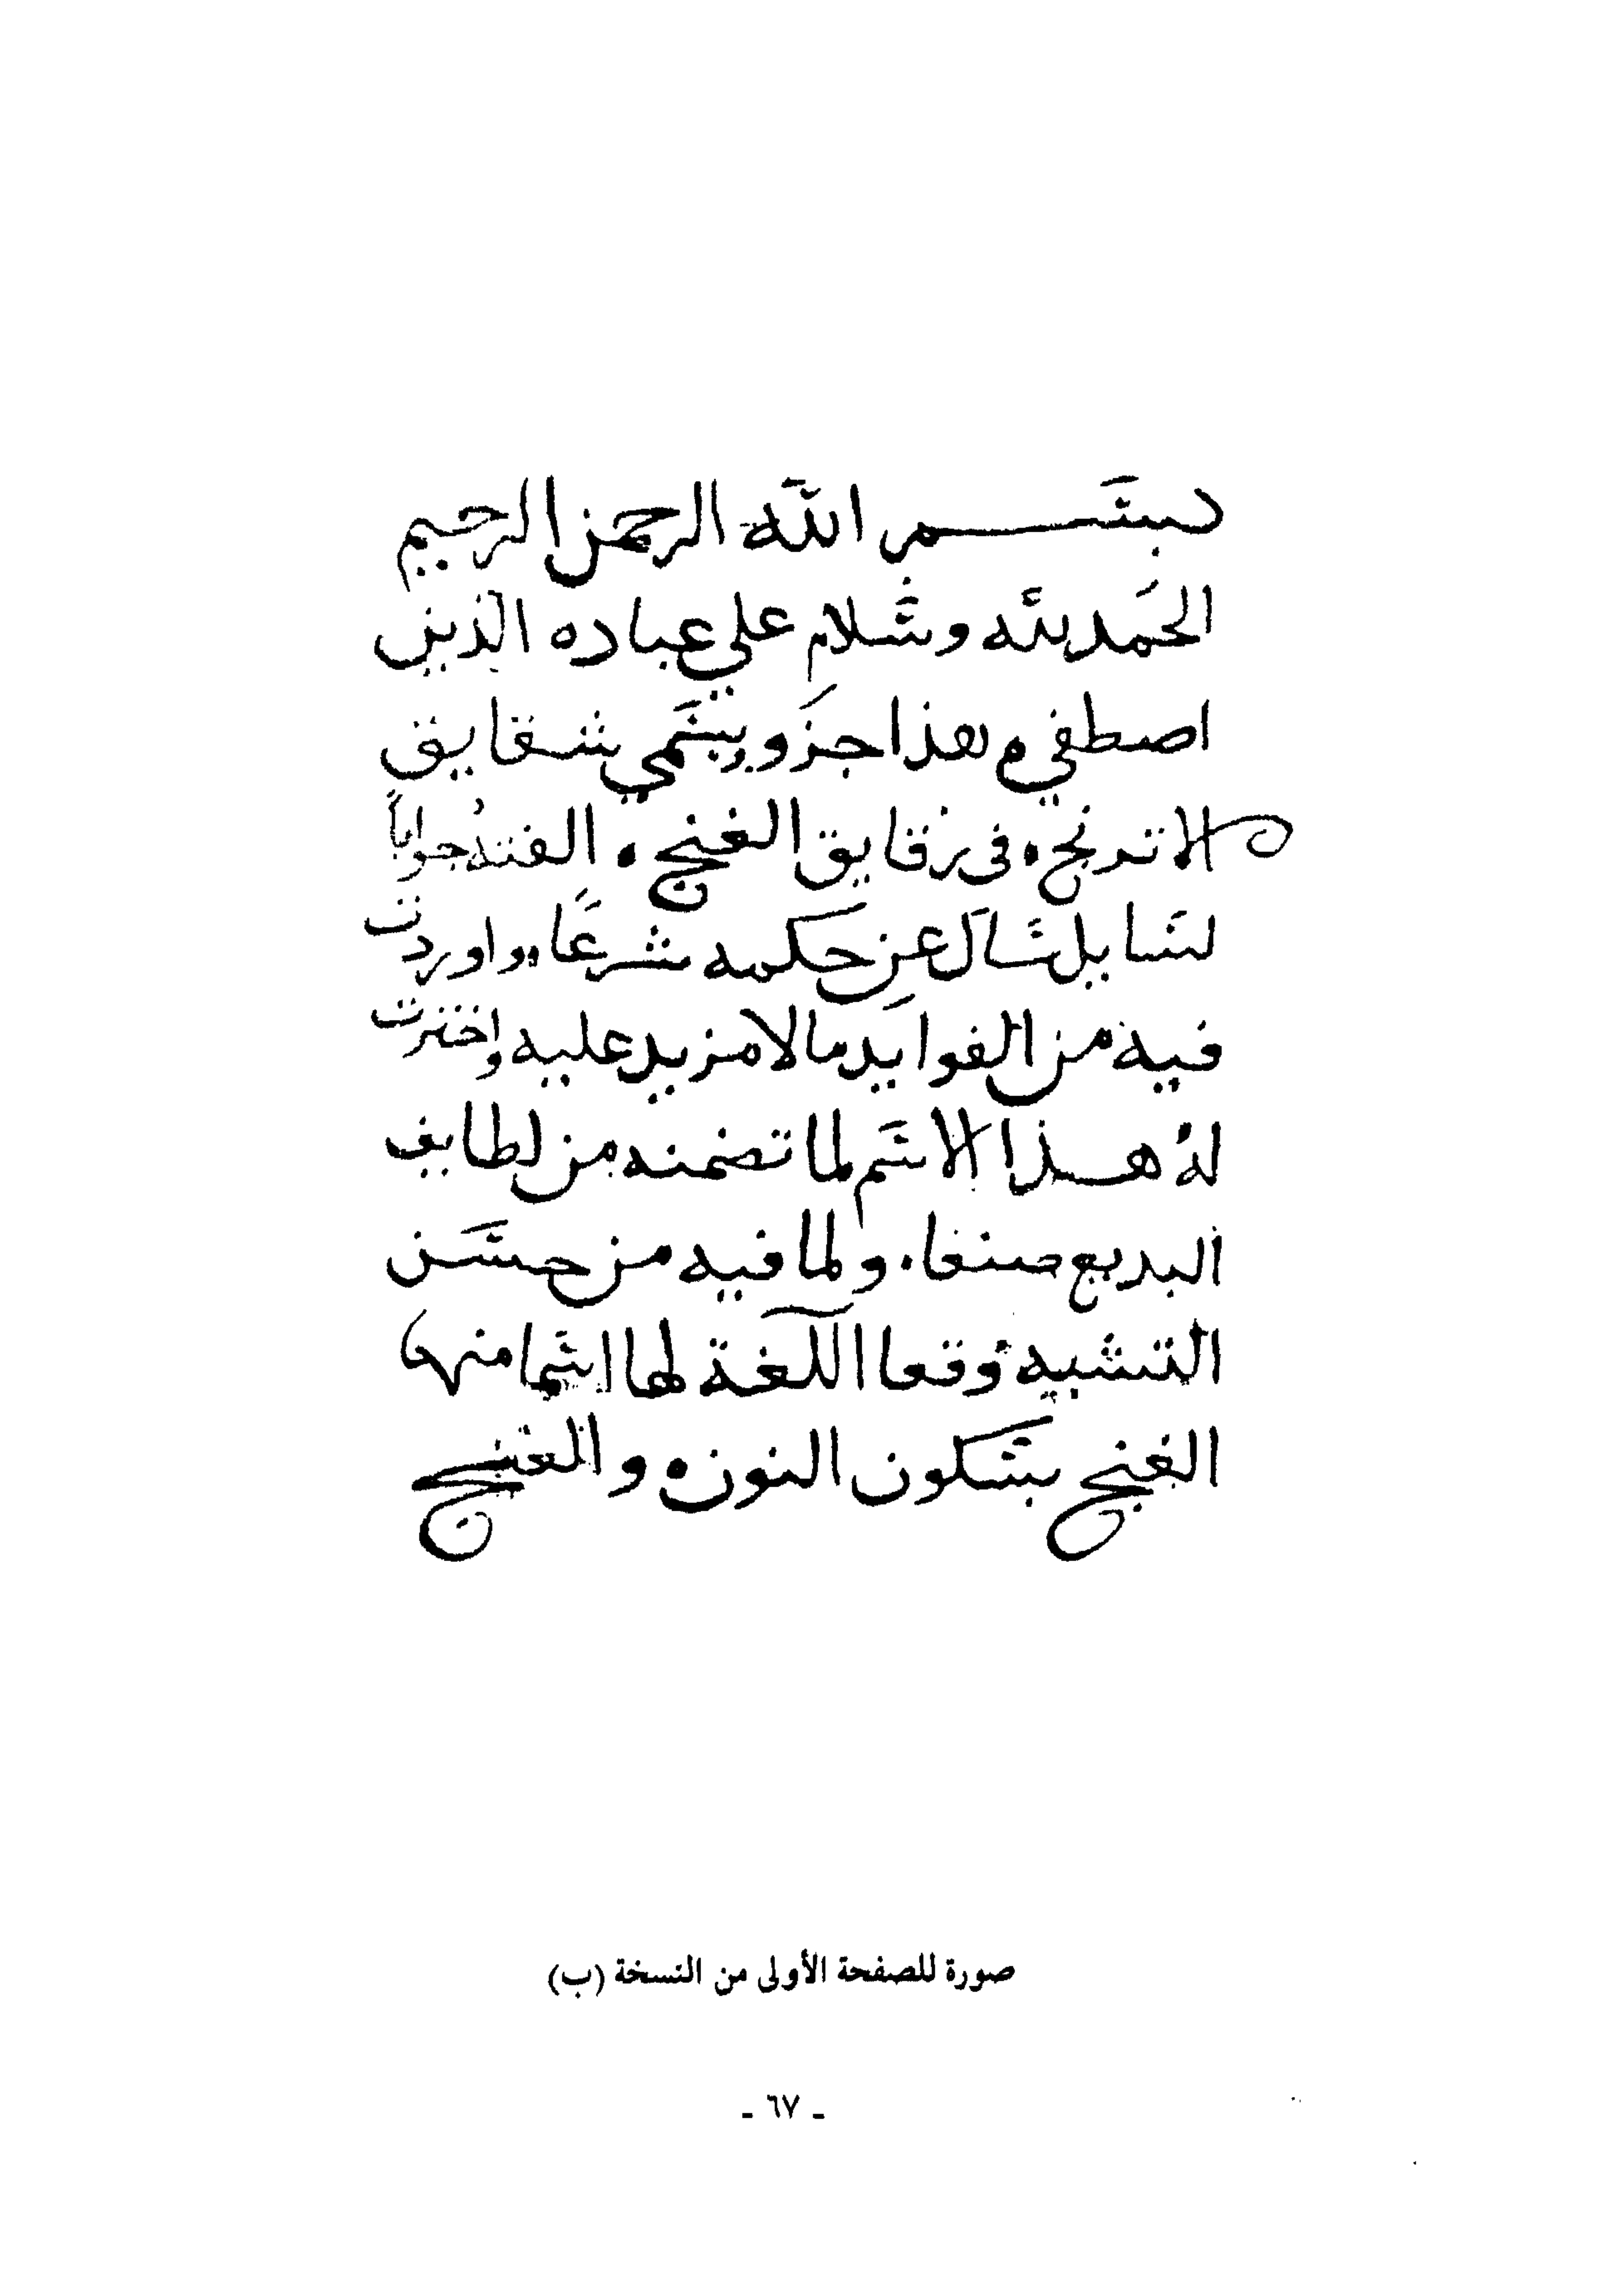 بسم الله الرحمن الرحيم
الحمد لله وسلام على عباده الذين
اصطفى هذا جزو يسمى شقايق
الاترنج في رقايق الغنج الفته جواباً
لسايل سال عن حكمه شرعًا واوردت
فيه من الفوايد مالا مزيد عليه واخترت
له هذا الاسم لما تضمنه من لطايف
البديع صنعا ولما فيه من حسن
التشبيه وقعا اللغة لها اسما منها
الغنج بسكون النون والغنج
صورة للصفحة الأولى من النسخة (ب)
- ٦٧ -